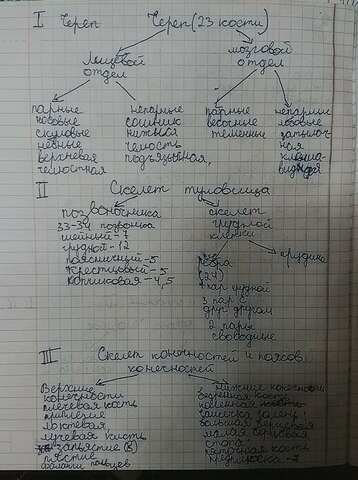 I Череп Череп (23 кости)
Лицевой отдел
мозговой отдел
парные
носовые
скуловые
небные
верхневая
челюстная
непарные
сошник
нижняя
челюсть
подъязычная,
парные
височные
теменные
непарные
лобовые
затылоч
ная
клинно-
видной
II Скелет туловища
позвоночника
33-34 позвонка
шейный-7
грудной-12
поясничный-5
крестцовый-5
копчиковая-4,5
скелет
грудной
клетки
грудина
ребра
(24)
7 пар
3 пар с
друг другом
2 пары
свободные
III Скелет конечностей и поясов
конечностей
Верхние
конечности
плечевая кость
локтевая,
лучевая кость
запястие (8)
пястие
фаланги пальцев
нижние конечности
бедренная кость
малая берцовая
стопа